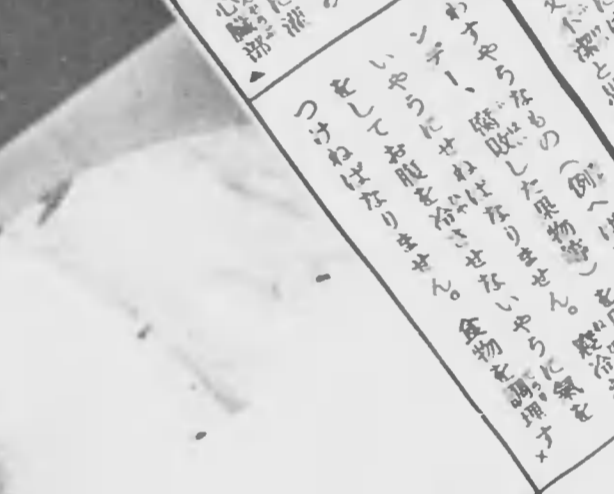 又不潔
わすやうなもの(例へば
ンデー、腐敗した果物等)を
いやうにせねばなりません。寢冷
をしてお腹を冷させないやうに氣を
つけねばなりません。食物を調理す
心臟部▲